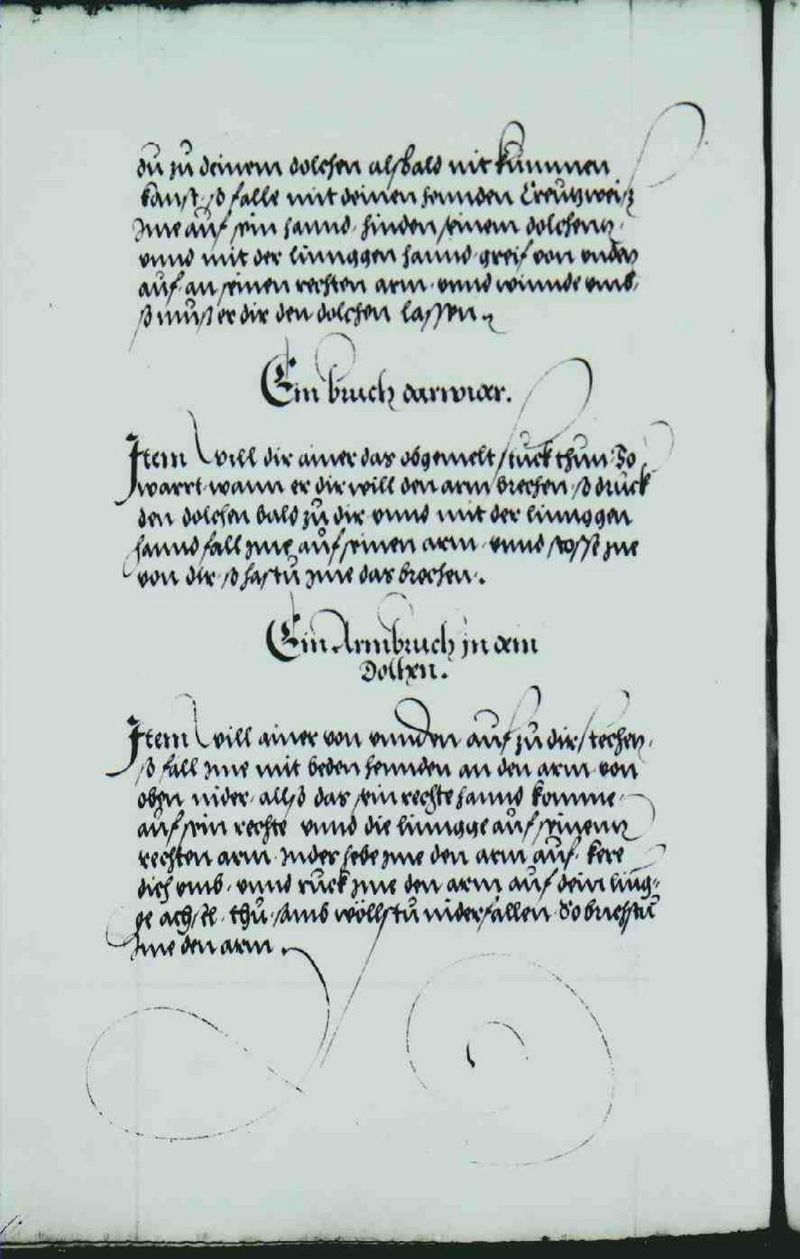 du zu deinem dolchen alsbald nit kummen
kanst, so falle mit deinen hennden Creutzweiß
Ime auf sein hannd, hinden seinem dolchenn,
unnd mit der linnggen hannd, greif von unden
auf an seinen rechten arm, unnd winnde umb,
so muß er dir den dolchen lassen.
Ein bruch darwider.
Item will dir ainer das obgemelt stuck thun, So
warrt wann er dir will den arm brechen, so druck
den dolchen bald zu dir unnd mit der linnggen
hannd fall Ime auf seinen arm, unnd stosst Ine
von dir, so hastu Ime das brochen.
Ein Armbruch in dem
Dolchen.
Item will ainer von unnden auf zu dir stechen,
so fall Ime mit beden hennden an den arm von
oben nider, allso das sein rechte hannd komme,
auf sein rechte unnd die linngge auf seinenn
rechten arm, Inder hebe Ime den arm auf, kere
dich umb, unnd ruck Ime den arm auf dein ling-
ge achsel, thu samb wöllstu niderfallen, So brichstu
Ime den arm.